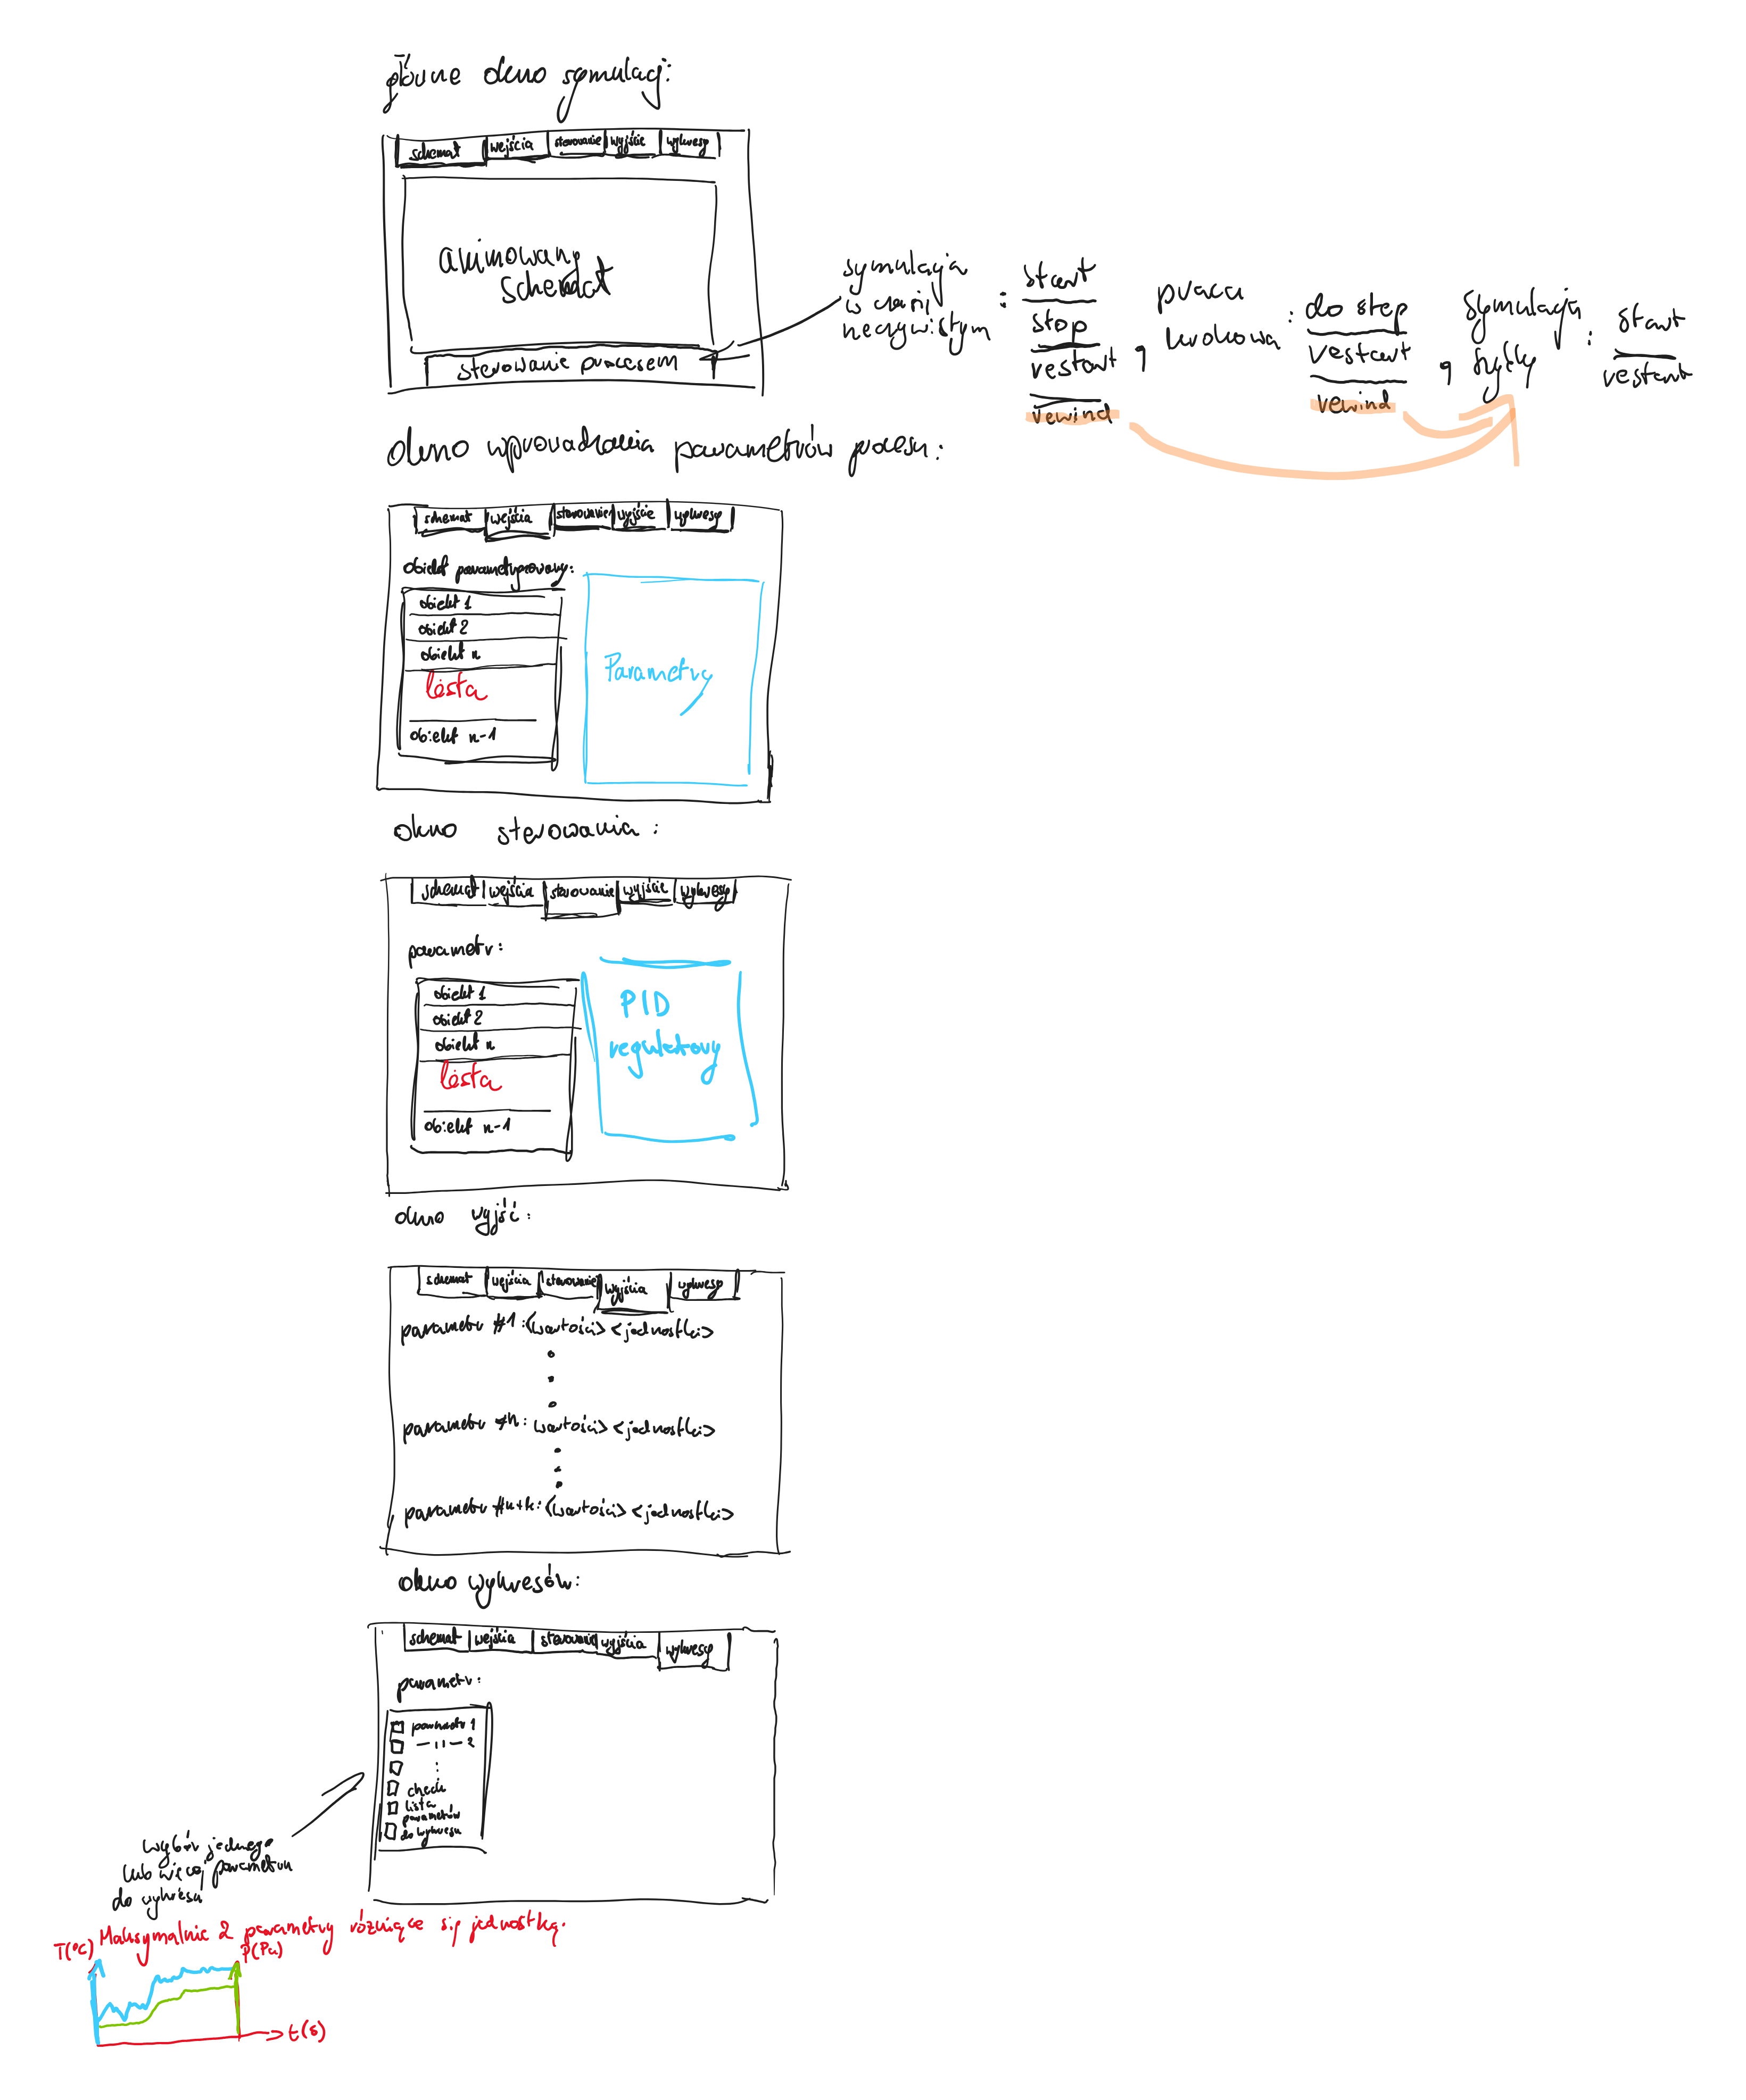 główne okno symulacji:
schemat wejścia sterowanie wyjście wykresy
animowany
schemat
sterowanie procesem
symulacja
w czasie
rzeczywistym
:
start
stop
restart
rewind
, praca
krokowa
:
do step
restart
rewind
, symulacja
szybka
:
start
restart
okno wprowadzania parametrów procesu:
schemat wejścia sterowanie wyjście wykresy
obiekt parametryzowany:
obiekt 1
obiekt 2
obiekt n
lista
obiekt n-1
Parametry
okno sterowania:
schemat wejścia sterowanie wyjście wykresy
parametr:
obiekt 1
obiekt 2
obiekt n
lista
obiekt n-1
PID
regulatory
okno wyjść:
schemat wejścia sterowanie wyjścia wykresy
parametr #1: <wartości> <jednostki>
parametr #n: wartości> <jednostki>
parametr #n+k: <wartości> <jednostki>
okno wykresów:
schemat wejścia sterowanie wyjścia wykresy
parametr:
parametr 1
— 11 — 2
check
lista
parametrów
do wykresu
wybór jednego
lub więcej parametrów
do wykresu
Maksymalnie 2 parametry różniące się jednostką.
T(°C)
P(Pa)
t(s)